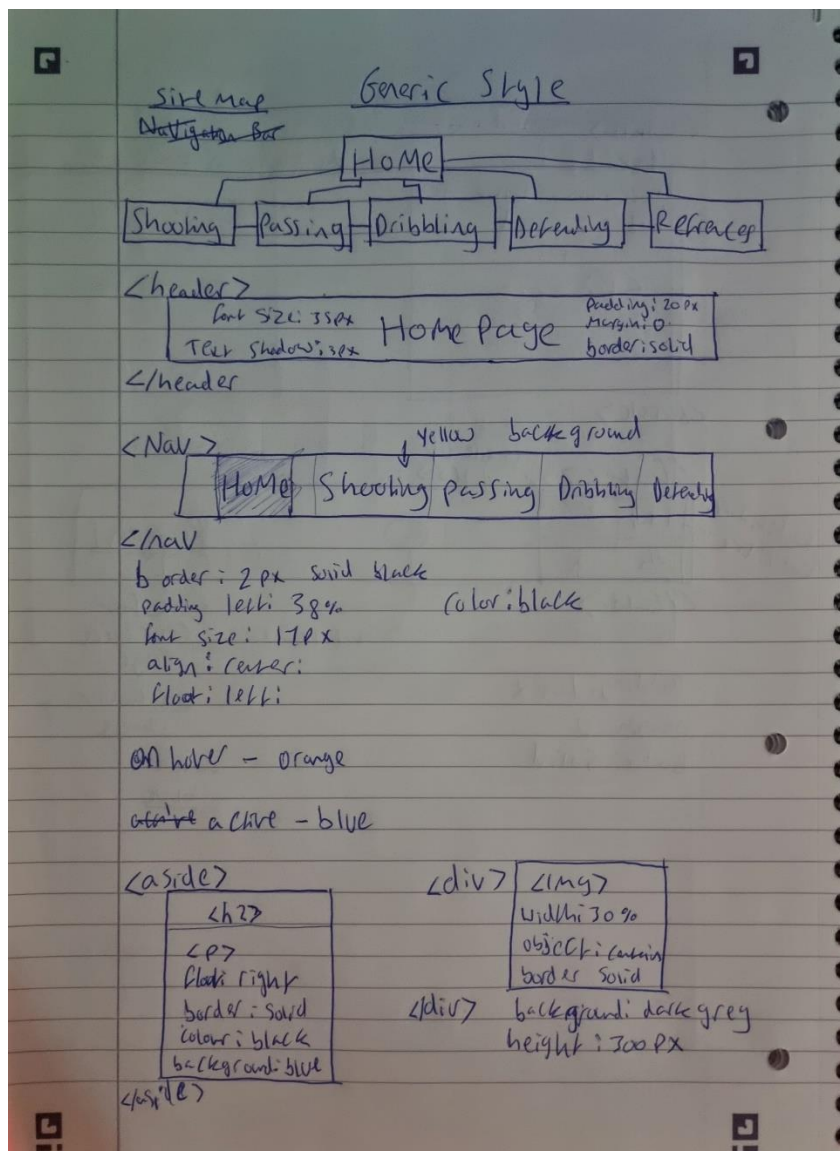 Generic Style
Site Map
Navigation Bar
HoMe
Shooting Passing Dribbling Defending Refrences
<header>
font size: 35px
Text Shadow: 3px
Home Page
padding: 20px
Margin: 0
border: solid
</header
<Nav>
yellow background
HoMe Shooting passing Dribbling Defending
</nav
border: 2px solid black
padding left: 38%
color: black
font size: 17px
align: center:
float: left:
on hover - orange
active - blue
<aside>
<h2>
<p>
float: right
border: solid
colour: black
background: blue
</aside>
<div>
<Img>
width: 30%
object: contain
border solid
</div>
background: dark grey
height: 300px